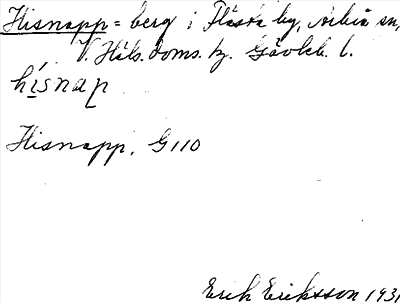 Hisnapp = berg i Flästa by, Arbrå sn,
V. Häls. doms. tg. Gävleb. l.
hísnap
Hisnapp. G110
Erik Eriksson 1931